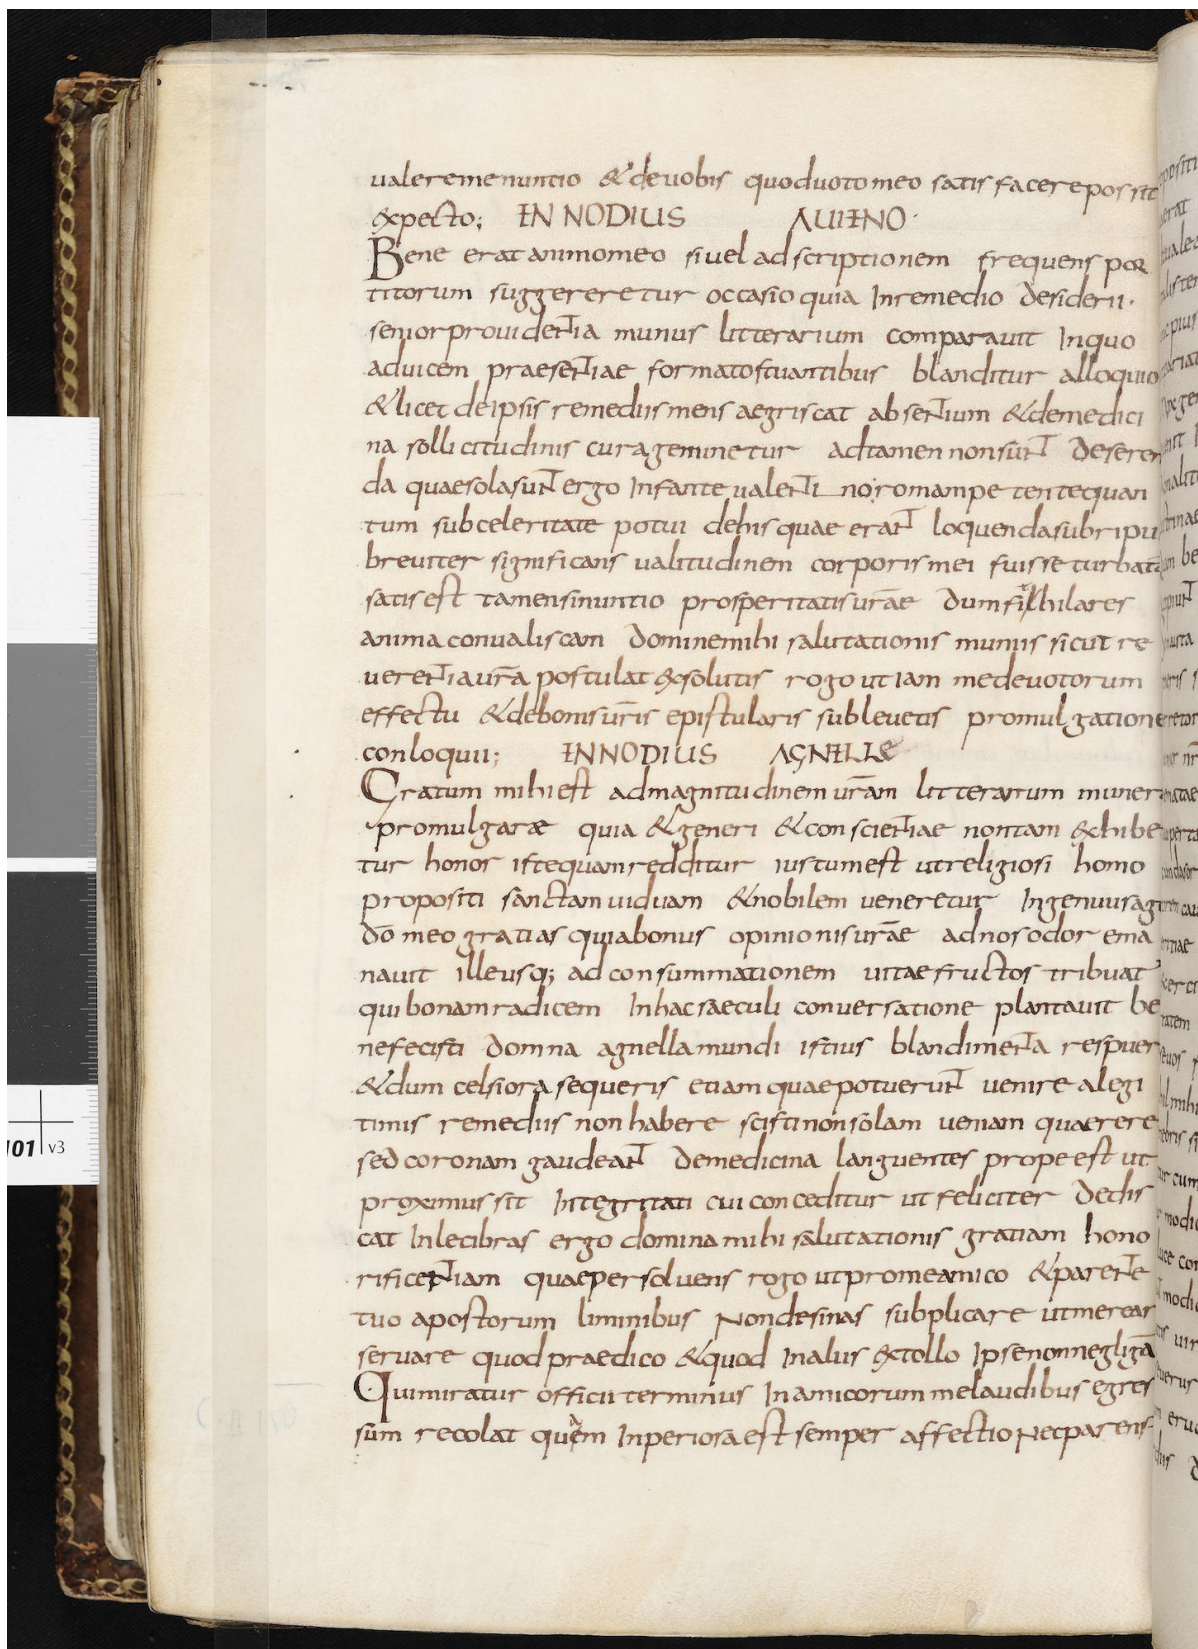 ualeremenuntio &deuobis quoduotomeo satisfacerepossit
expecto; ENNODIUS AUIENO·
Bene eratanimomeo siueladscriptionem frequens por
titorum suggereretur occasio quia Inremedio desiderii·
seniorprouidentia munus litterarium comparauit Inquo
aduicem praesentiae formatofruantibus blanditur alloquio
&licet deipsis remediis mens aegriscat absentium &demedici
na sollicitudinis curageminetur adtamen nonsunt deseren
da quaesolasunt ergo Infante ualenti noromampetentequan
tum subceleritate potui dehis quae erant loquendasubripui
breuiter significans ualitudinem corporismei fuisse turbata
satisest tamensinuntio prosperitatisurae dum hilares
anima conualiscam dominemihi salutationis munus sicut re
uerentiaura postulat exsolutis rogo utiam medeuotorum
effectu &debonisuris epistularis subleuetis promulgatione
conloquii; ENNODIUS AGNELLE
Gratum mihiest admagnitudinem uram litterarum muner
promulgare quia &generi &conscientiae nontam exhibe
tur honor istequamredditur iustumest utreligiosi homo
propositi sanctam uiduam &nobilem ueneretur Ingenuusag
do meo gratias quiabonus opinionisurae adnosodor ema
nauit illeusq; adconsummationem uitaefructos tribuat
quibonamradicem Inhacsaeculi conuersatione plantauit be
nefecisti domna agnellamundi istius blandimenta respuer
&dum celsiora sequeris etiam quaepotuerunt uenire alegi
timis remediis nonhabere scistinonsolam ueniam quaerere
sedcoronam gaudeant demedicina languentes propeest ut
proximussit Integritati cui conceditur ut feliciter dedis
cat Inlecibras ergo dominamihi salutationis gratiam hono
rificentiam quaepersoluens rogo utpromeamico &parente
tuo apostorum liminibus Nondesinas subplicare utmerear
seruare quodpraedico &quod Inalus extollo Ipsenonnegliga
Quimiratur officii terminus Inamicorum melaudibus egres
sum recolat quem Inperiosaest semper affectio Necparens